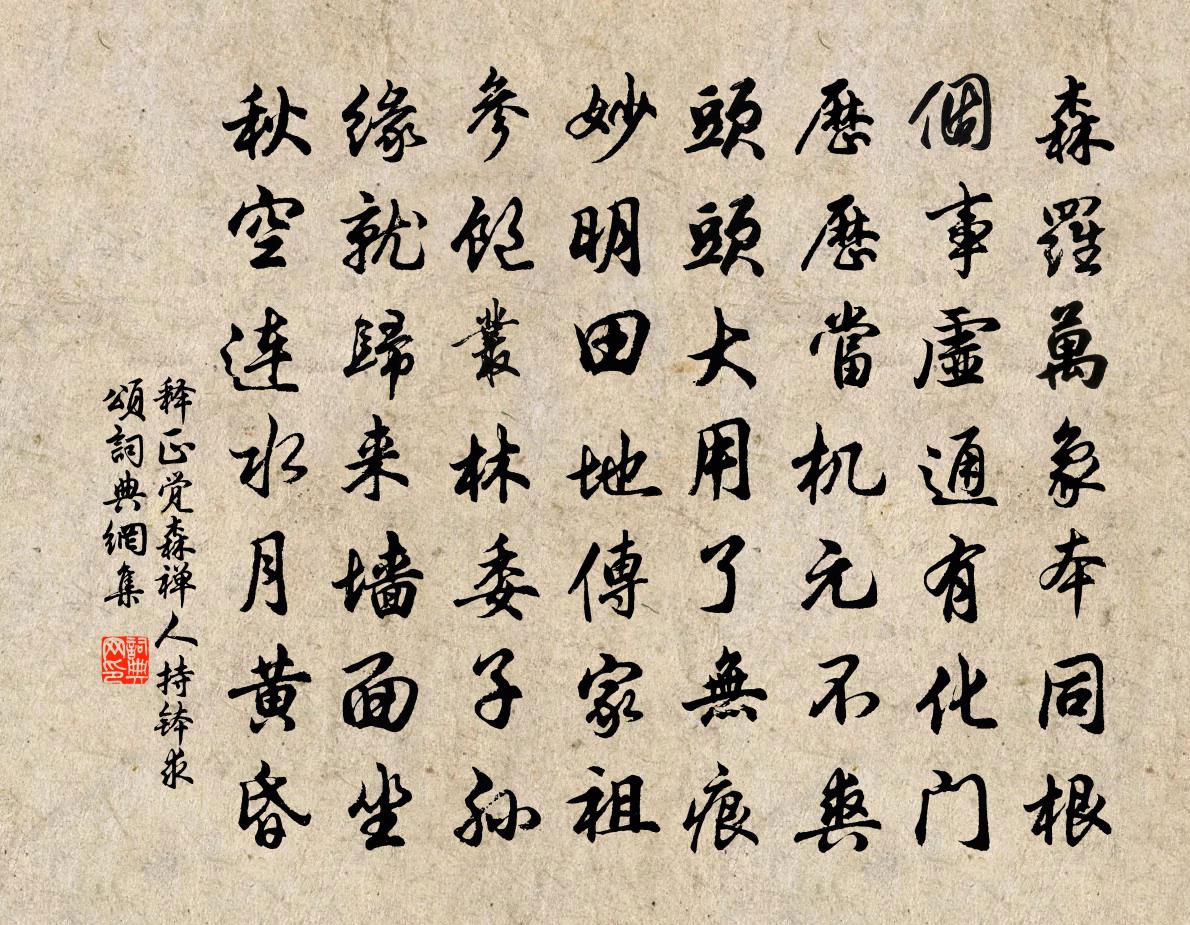 森羅萬象本同根
個事虛通有化门
歷歷當机元不爽
頭頭大用了無痕
妙明田地傳家祖
參飽叢林委子孫
緣就歸来墙面坐
秋空连水月黄昏
释正觉森禅人持钵求
頌詞典網集
詞典网印